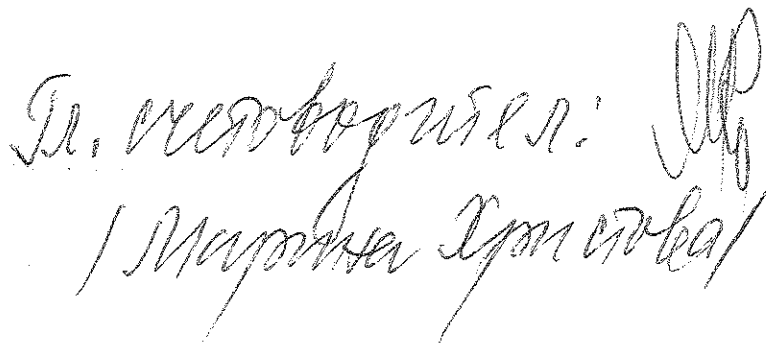 Гл. счетоводител:
/Марина Христова/